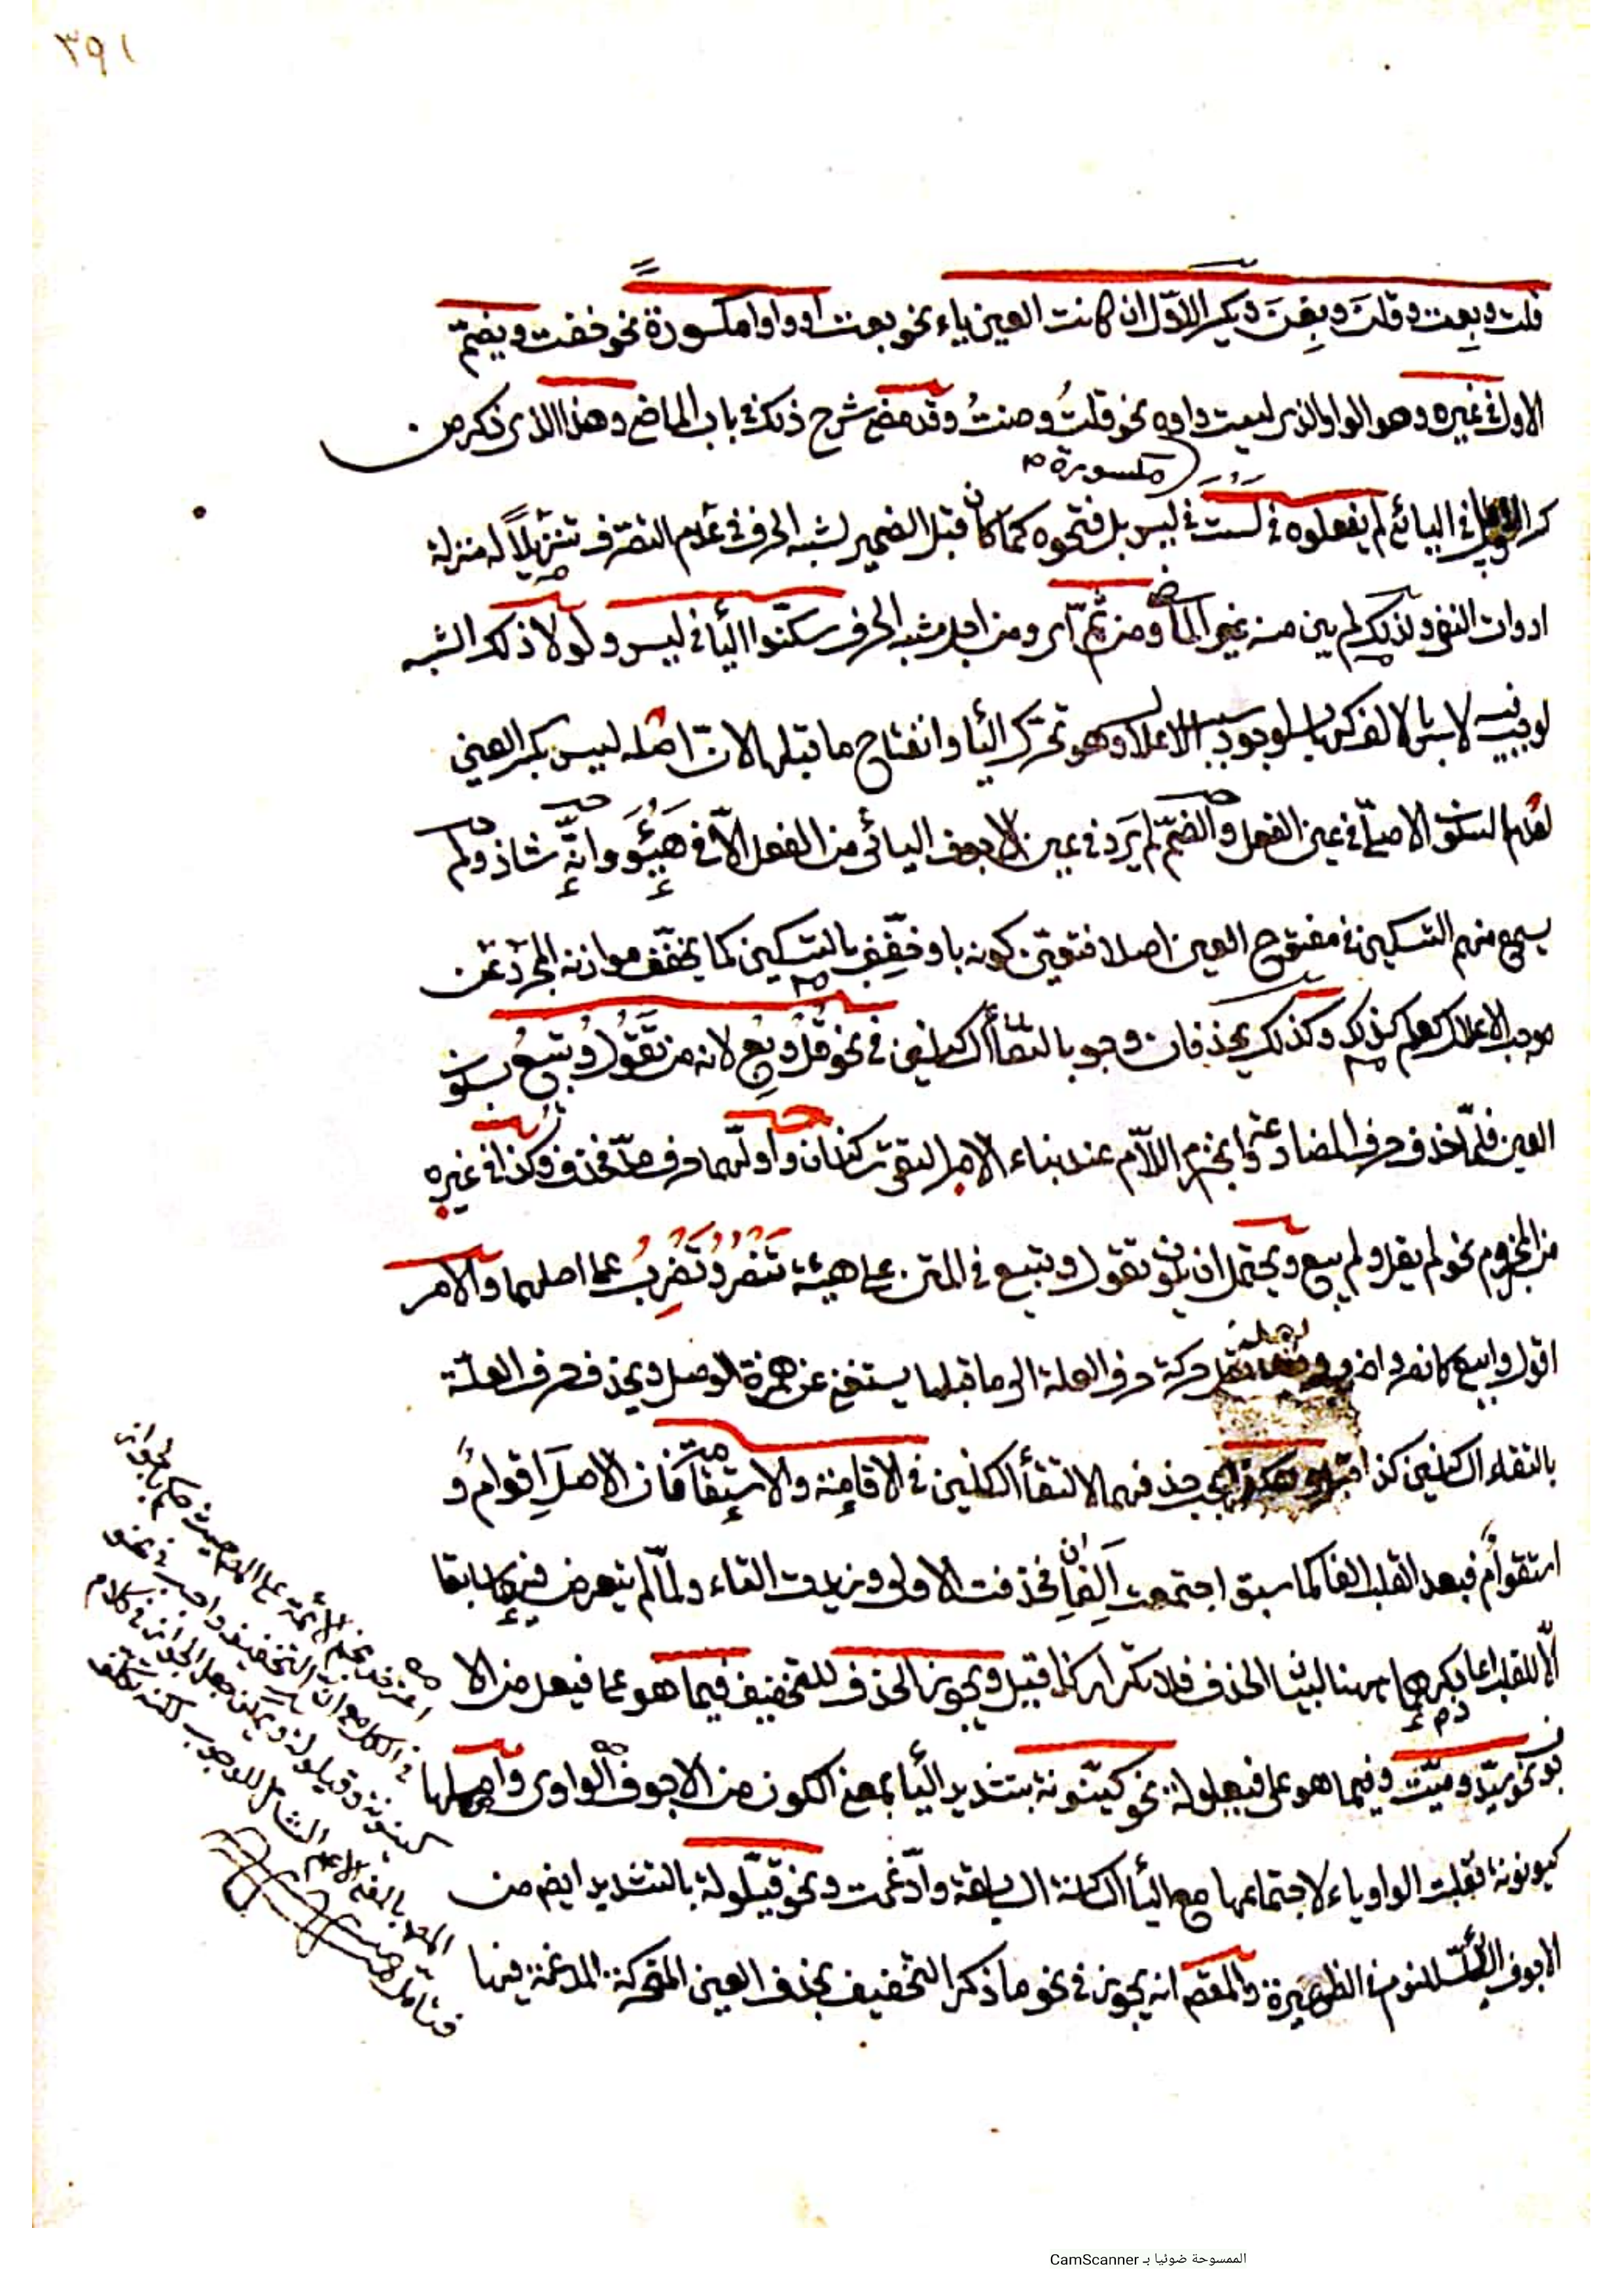 ٣٩١
قلت وبعت وقلنَ وبِعْنَ ويكسر الاوّل ان كانت العين ياء نحو بعت او واوا مكسورة نحو خفت ويضمّ
الاول في غيره وهو الواو الذي ليست واوه نحو قلتُ وصنتُ وقد مضى شرح ذلك في باب الماضي وهذا الذي ذكر من
مكسورة
كسر الاول في اليائي لم يفعلوه في لَسْتُ في ليس بل فتحوه كما كان قبل الضمير لشبه الحرف في عدم التصرف تنزيلاً له منزلة
ادوات النفي ولذلك لم يبن منه غير الماضي ومن ثم اى ومن اجل شبه الحرف سكّنوا اليأ في ليس ولولا ذلك الشبه
لوجب لاس بالالف لوجود سبب الاعلال وهو تحرك اليأ وانفتاح ما قبلها لان اصله ليس بكسر العين
لعدم السكون الاصلي في عين الفعل والضمّ لم يَرِد في عين الاجوف اليائي من الفعل الاّ في هَيُؤَ وانّه شاذ ولم
يسمع منهم التسكين في مفتوح العين اصلا فتعيّن كونه بل وخفّف بالتسكين كما يخفّف موازنه المجرّد عن
موجب الاعلال كعلم كذلك وكذلك يحذفان وجوبا بالتقأ الساكنين في نحو قُلْ وبِعْ لانه من تَقْوُلُ وتبيعُ بسكون
العين فلمّا حذف حرف المضارعة وانجزم اللاّم عند بناء الامر التقى ساكنان واولهما حرف مدّ فحذف وكذا في غيره
من المجزوم نحو لم يقل ولم يبع ويحتمل ان يكون تقول وتبيع في المتن على هيئة تَنْصُرُ وتَضْرِبُ على اصلهما والامر
اقول وابيع كانصر واضرب حركة حرف العلة الى ما قبلها يستغنى عن همزة الوصل ويحذف حرف العلّة
بالتقاء الساكنين كذا قيل وهكذا يجب حذفهما لالتقأ الساكنين في الاقامة والاستقامة فان الاصل اِقوامٌ و
استقوامٌ فبعد القلب الفا كما سبق اجتمعت اَلِفانِ فحذفت الاولى وزيدت التاء ولمّا لم يتعرض فيما سبقا
الاّ للقلب اعاد ذكرهما ههنا لبيان الحذف فلا تكرار كذا قيل ويجوز الحذف للتخفيف فيما هو على فيعل من الا
جوف نحو سيّد وميّت وفيما هو على فيعلولة نحو كيّنونة بتشديد اليأ بمعنى الكون من الاجوف الواوى واصلها
كيونونة فقلبت الواو ياء لاجتماعها مع اليأ الساكنة السابقة وادغمت ونحو قيّلولة بالتشديد ايضا من
الاجوف اليائي للنوم في الظهيرة والمعنى انه يجوز في نحو ما ذكر التخفيف بحذف العين المتحركة المدغمة فيها
في الكل مع ان التخفيف واجب في نحو
كينونة وقيلولة ويمكن حمل الجواز في كلام
المصـ بالمعنى الاعم الشامل للوجوب لكنه تكلف
فتأمل
الممسوحة ضوئيا بـ CamScanner